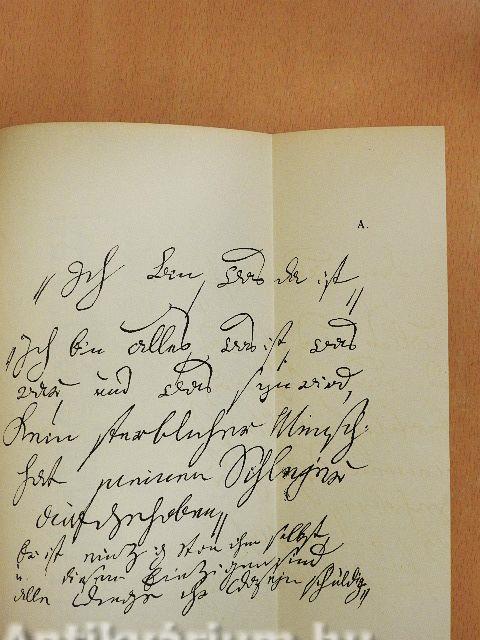 A.
„Ich bin, was da ist„
„Ich bin alles, was ist, was
war, und was seyn wird,
Kein sterblicher Mensch
hat meinen Schleyer
aufgehoben„
Er ist einzig von ihm selbst,
u. diesem Einzigen sind
alle Dinge ihr Daseyn schuldig„
Antikvárium.hu